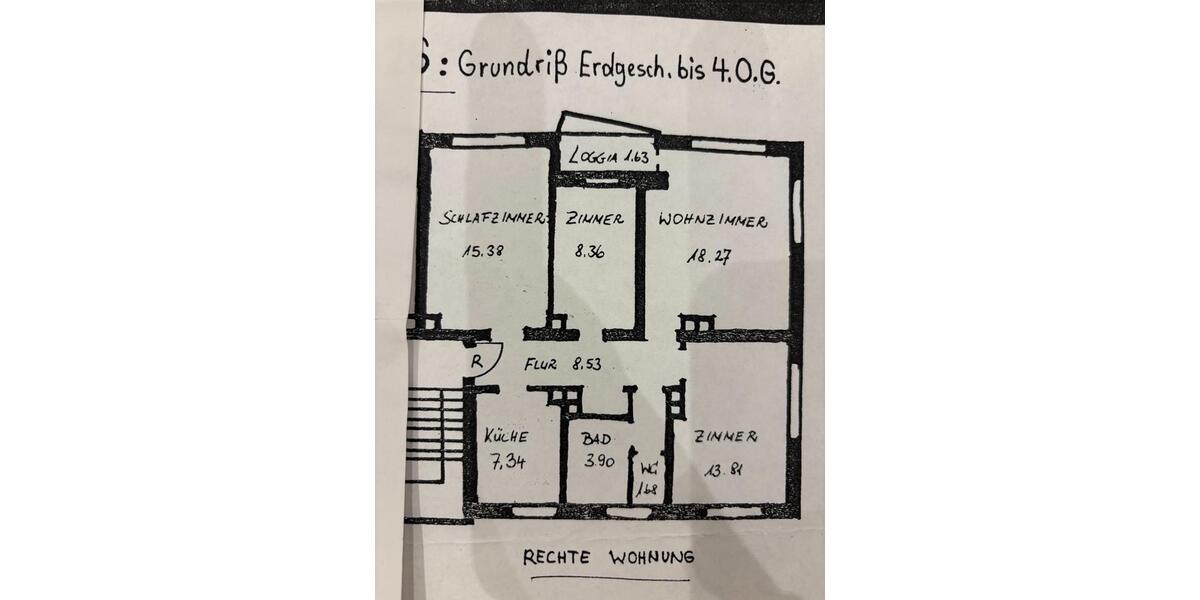 : Grundriß Erdgesch. bis 4.O.G.
LOGGIA 1.63
SCHLAFZIMMER
15.38
ZIMMER
8.36
WOHNZIMMER
18.27
R
FLUR 8.53
KÜCHE
7,34
BAD
3.90
WC
1.68
ZIMMER
13.81
RECHTE WOHNUNG